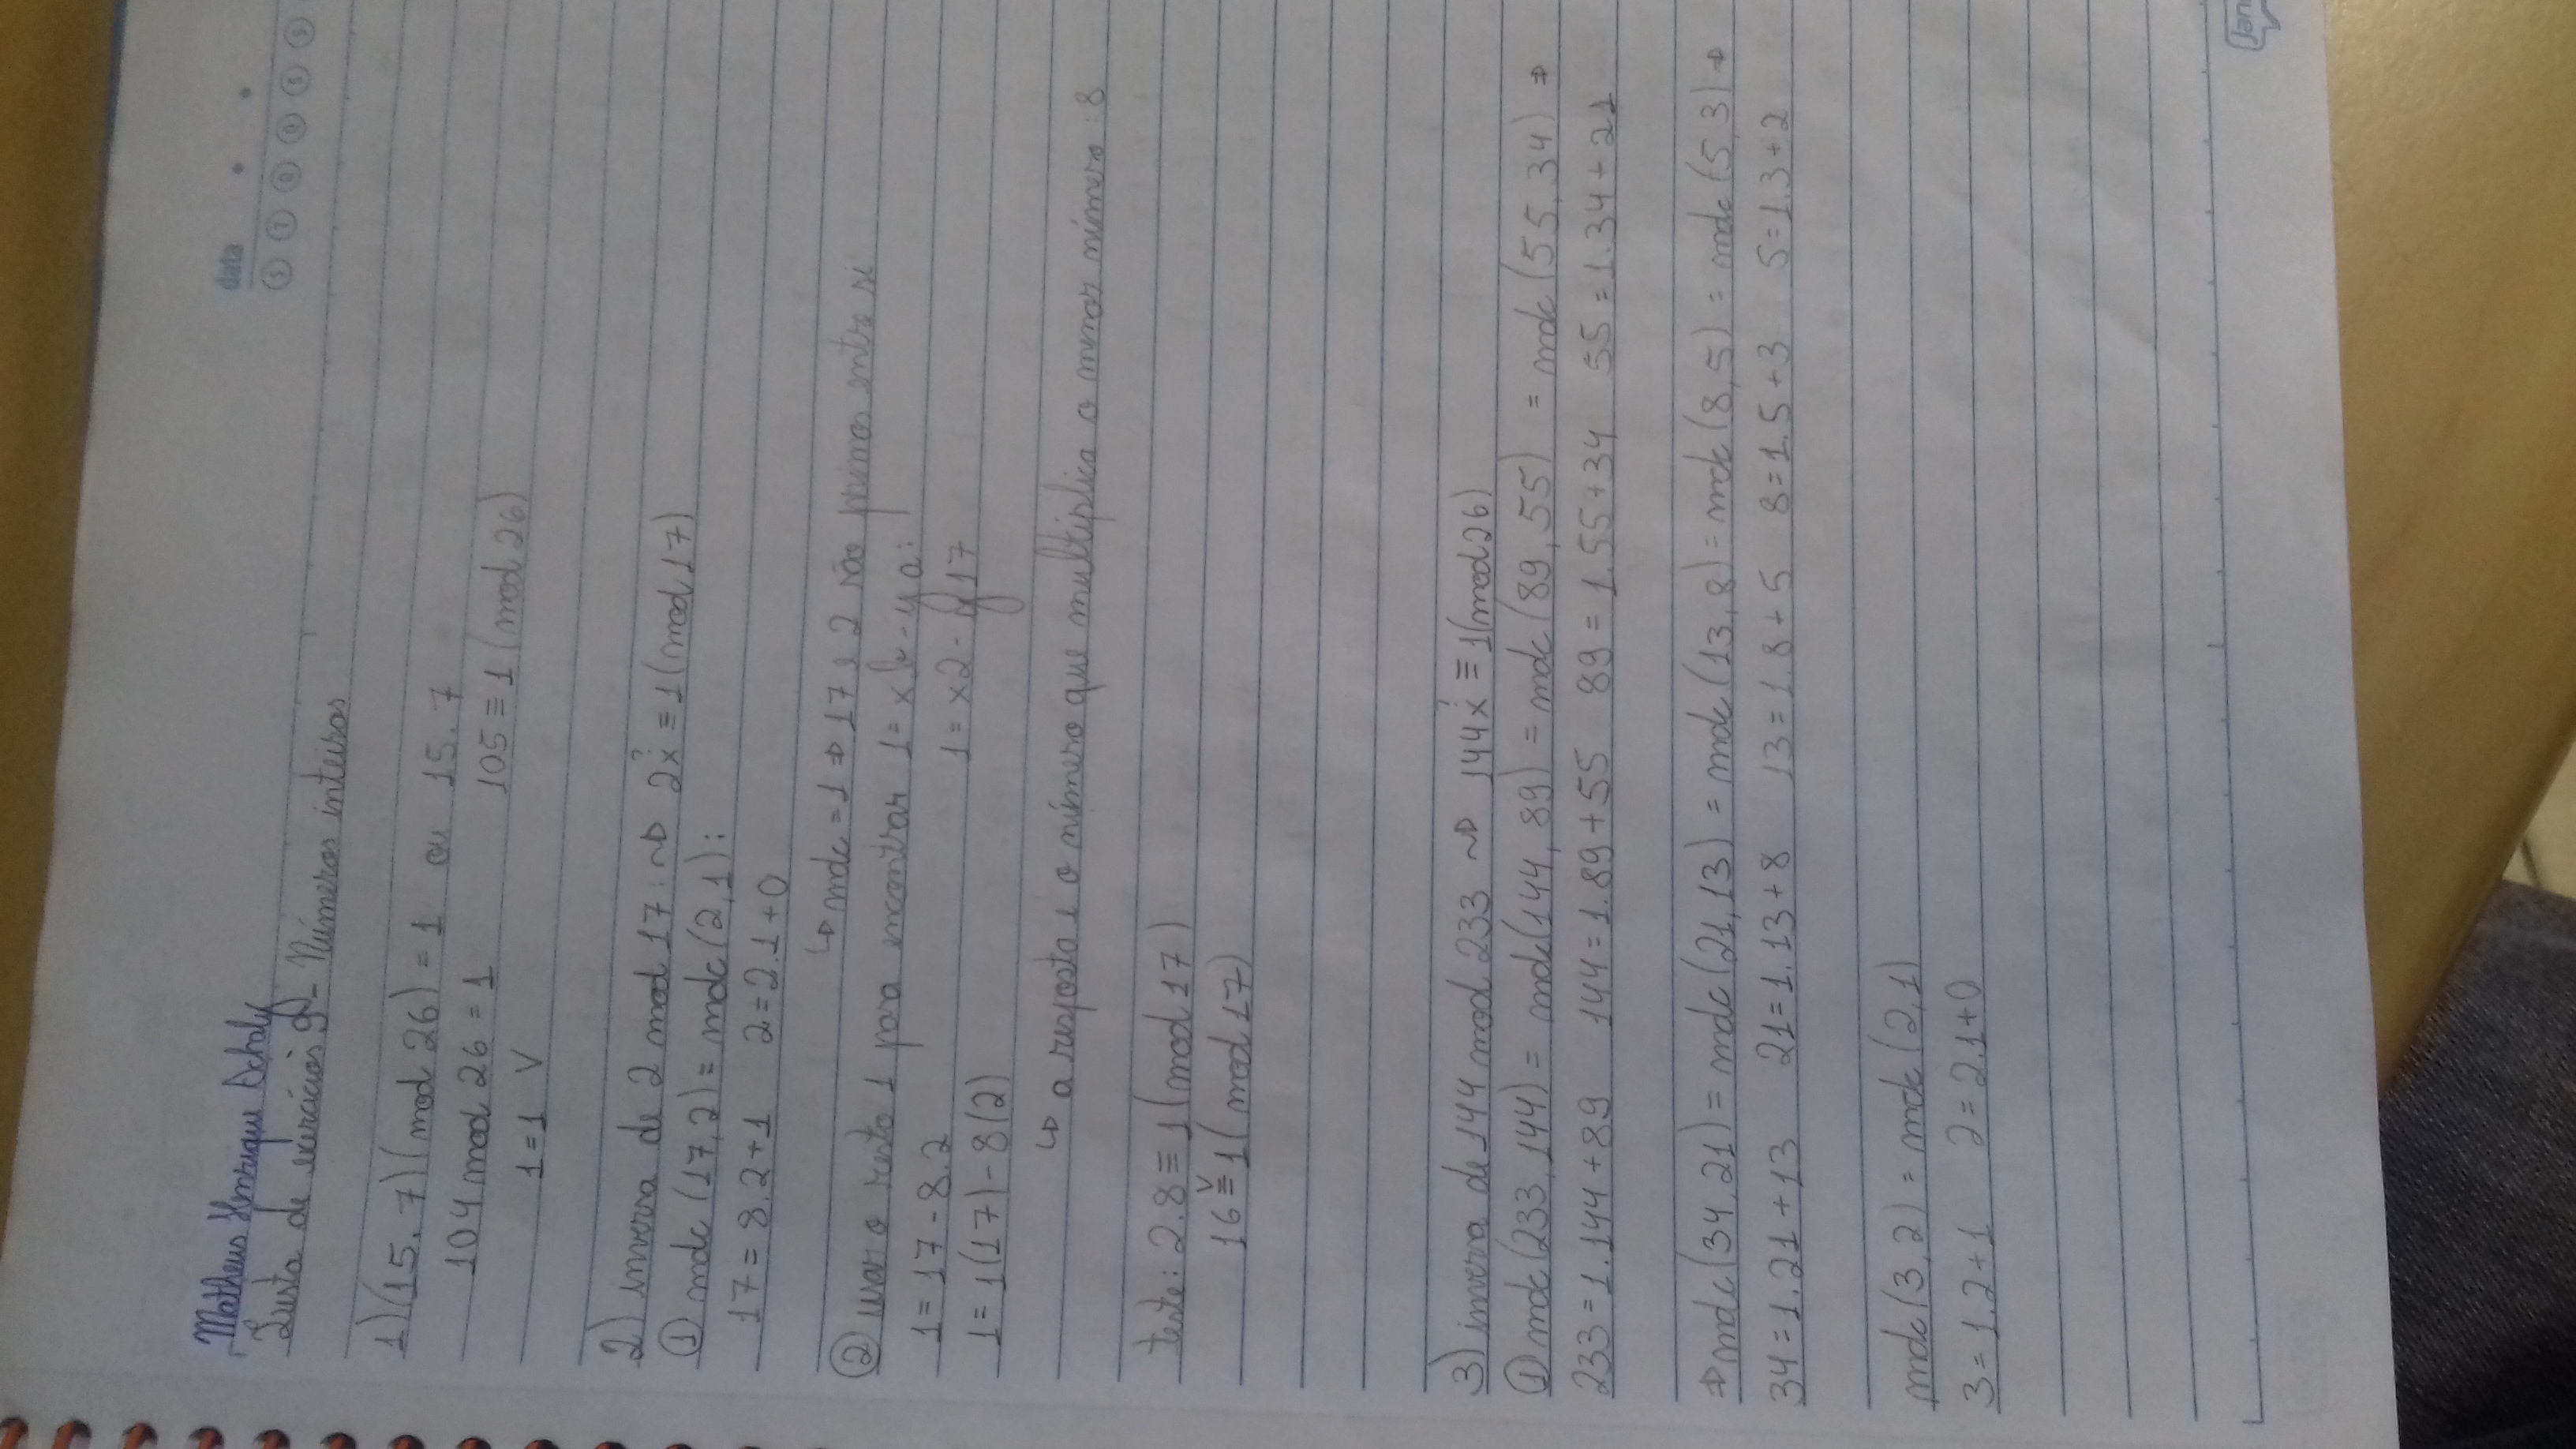 Matheus Henrique Schaly
data
S T Q Q S S
Lista de exercícios 9 - Números inteiros
1) (15.7)(mod 26) = 1 ou 15.7
104 mod 26 = 1 105 ≡ 1 (mod 26)
1=1 V
2) inversa de 2 mod 17 ~> 2x ≡ 1 (mod 17)
?
① mdc (17,2) = mdc (2,1):
17 = 8.2+1 2=2.1+0
↳ mdc = 1 => 17 e 2 são primos entre si
② usar o resto 1 para encontrar 1 = xb - ya:
1 = 17 - 8.2 1 = x2 - y17
1 = 1(17) - 8(2)
↳ a resposta é o número que multiplica o menor número: 8
teste: 2.8 ≡ 1 (mod 17)
V
16 ≡ 1 (mod 17)
3) inversa de 144 mod 233 ~> 144x ≡ 1(mod 26)
?
① mdc(233,144) = mdc(144,89) = mdc (89,55) = mdc (55,34) =>
233 = 1.144+89 144 = 1.89+55 89 = 1.55+34 55 = 1.34+21
=> mdc(34,21) = mdc(21,13) = mdc (13,8) = mdc (8,5) = mdc (5,3) =>
34=1.21+13 21=1.13+8 13=1.8+5 8=1.5+3 5=1.3+2
mdc(3,2) = mdc (2,1)
3=1.2+1 2=2.1+0
Jan